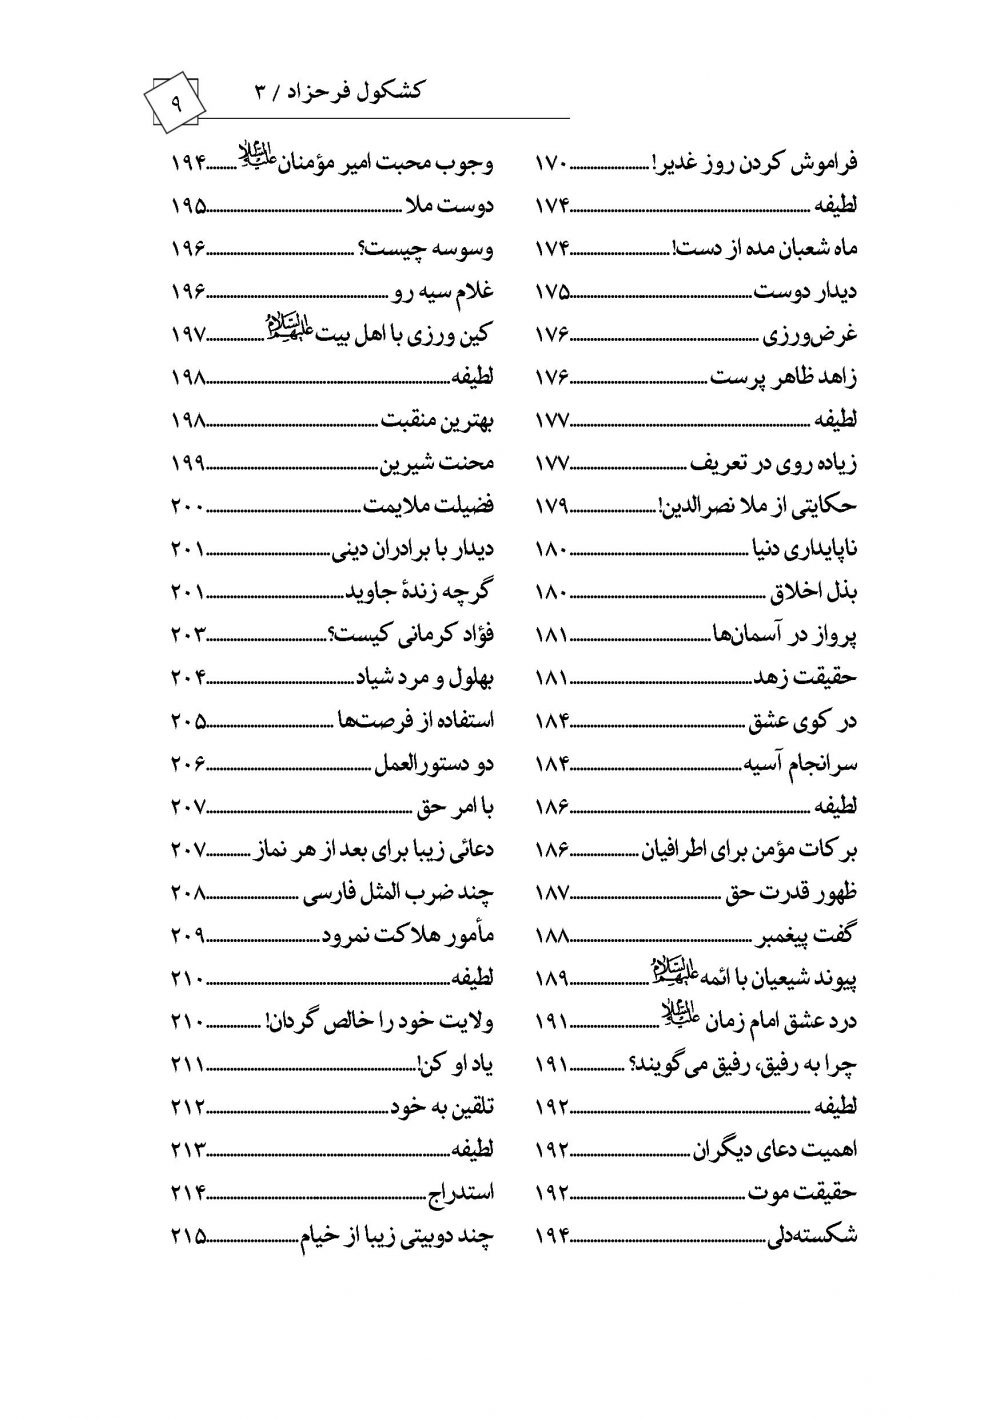 کشکول فرحزاد / ۳
۹
فراموش کردن روز غدیر!......................۱۷۰
لطیفه......................۱۷۴
ماه شعبان مده از دست!......................۱۷۴
دیدار دوست......................۱۷۵
غرض‌ورزی......................۱۷۶
زاهد ظاهر پرست......................۱۷۶
لطیفه......................۱۷۷
زیاده روی در تعریف......................۱۷۷
حکایتی از ملا نصرالدین!......................۱۷۹
ناپایداری دنیا......................۱۸۰
بذل اخلاق......................۱۸۰
پرواز در آسمان‌ها......................۱۸۱
حقیقت زهد......................۱۸۱
در کوی عشق......................۱۸۴
سرانجام آسیه......................۱۸۴
لطیفه......................۱۸۶
برکات مؤمن برای اطرافیان......................۱۸۶
ظهور قدرت حق......................۱۸۷
گفت پیغمبر......................۱۸۸
پیوند شیعیان با ائمه علیهم‌السلام......................۱۸۹
درد عشق امام زمان علیه‌السلام......................۱۹۱
چرا به رفیق، رفیق می‌گویند؟......................۱۹۱
لطیفه......................۱۹۲
اهمیت دعای دیگران......................۱۹۲
حقیقت موت......................۱۹۲
شکسته‌دلی......................۱۹۴
وجوب محبت امیر مؤمنان علیه‌السلام......................۱۹۴
دوست ملا......................۱۹۵
وسوسه چیست؟......................۱۹۶
غلام سیه رو......................۱۹۶
کین ورزی با اهل بیت علیهم‌السلام......................۱۹۷
لطیفه......................۱۹۸
بهترین منقبت......................۱۹۸
محنت شیرین......................۱۹۹
فضیلت ملایمت......................۲۰۰
دیدار با برادران دینی......................۲۰۱
گرچه زندهٔ جاوید......................۲۰۱
فؤاد کرمانی کیست؟......................۲۰۳
بهلول و مرد شیاد......................۲۰۴
استفاده از فرصت‌ها......................۲۰۵
دو دستورالعمل......................۲۰۶
با امر حق......................۲۰۷
دعائی زیبا برای بعد از هر نماز......................۲۰۷
چند ضرب المثل فارسی......................۲۰۸
مأمور هلاکت نمرود......................۲۰۹
لطیفه......................۲۱۰
ولایت خود را خالص گردان!......................۲۱۰
یاد او کن!......................۲۱۱
تلقین به خود......................۲۱۲
لطیفه......................۲۱۳
استدراج......................۲۱۴
چند دوبیتی زیبا از خیام......................۲۱۵